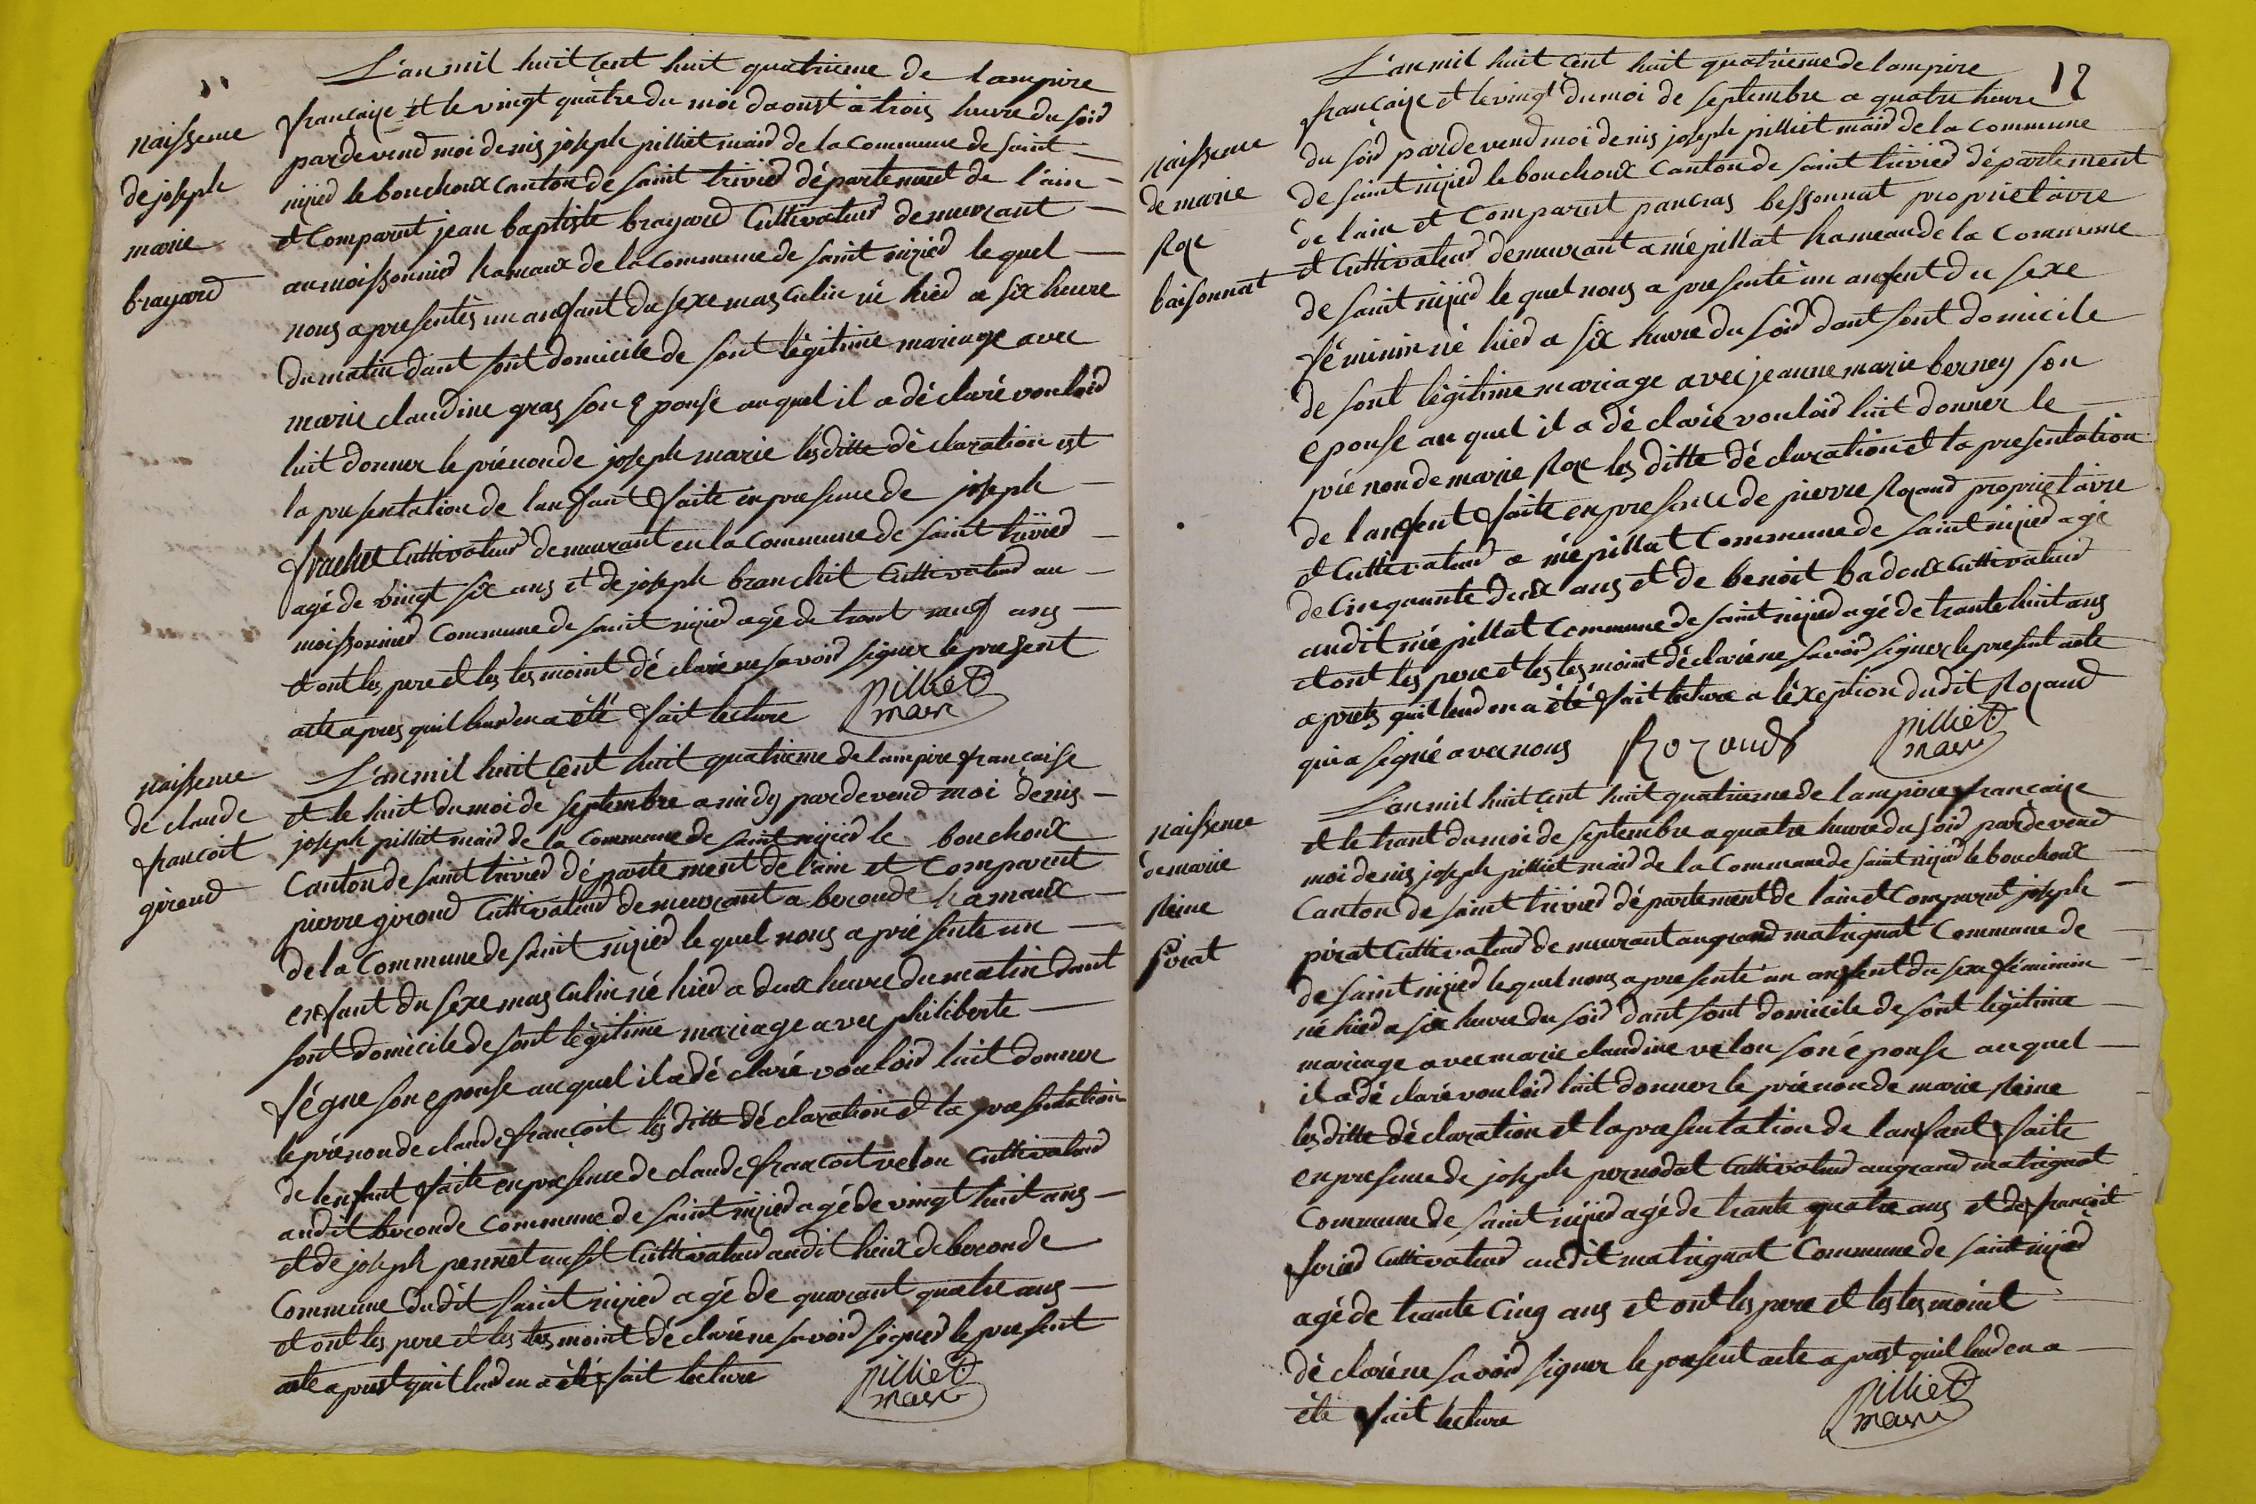 L'an mil huit cent huit quatrieme de lampire
française et le vingt quatre du moi daoust a trois heure du soir
naissence
pardevend moi denis joseph pilliet mair de la Commune de saint
de joseph
nizied le bouchoux Canton de saint trivied département de l'ain
marie
et Comparut jean baptiste brayard Cultivateur demeurant
brayard
au moissonnied hamaux de la Commune de saint nizied le quel
nous a presentés un anfant du sexe masculin né hied a six heure
du matin dant sont domicile de sont légitime mariage avec
marie claudine gras son epouse au quel il a déclaré vouloir
luit donner le prénon de joseph marie lesditte déclaration est
la presentation de lanfant faite en presence de joseph
frachet Cultivateur demeurant en la Commune de saint trivied
agé de vingt six ans et de joseph branchit Cultivateur au
moissonnied Commune de saint nizied agé de trant neuf ans
et ont les pere et les tesmoint déclaré ne savoir signer le present
acte apres quil leur en a été fait lecture
pilliet
mair
L'an mil huit cent huit quatrieme de lampire française
naissence
et le huit du moi de septembre a midy pardevend moi denis
de claude
joseph pilliet mair de la Commune de saint nizied le bouchoux
françoit
Canton de saint trivied département de l'ain et Comparut
giroud
pierre giroud Cultivateur demeurant a beconde hamaux
de la Commune de saint nizied le quel nous a présente un
enfant du sexe masculin né hied a deux heure du matin dant
sont domicile de sont légitime mariage avec philiberte
fégue son epouse au quel il a déclaré vouloir luit donner
le prénon de claude françoit lesditte déclaration et la presentation
de lenfant faite en presence de claude françoit velon Cultivateur
audit beconde Commune de saint nizied agé de vingt huit ans
et de joseph pennet ausit Cultivateur audit lieux de beconde
Commune dudit saint nizied agé de quarant quatre ans
et ont les pere et les tesmoint déclaré ne savoir signer le present
acte aprest quil leur en a été fait lecture
pilliet
mair
12
L'an mil huit cent huit quatrieme de lampire
française et le vingt du moi de septembre a quatre heure
naissence
du soir pardevend moi denis joseph pilliet mair de la Commune
de marie
de saint nizied le bouchoux Canton de saint trivied département
Roze
de lain et Comparut pancras bessonnat proprietaire
baisonnat
et Cultivateur demeurant a mépillat hameau de la Commune
de saint nizied le quel nous a presenté un anfent du sexe
féminin né hied a six heure du soir dant sont domicile
de sont légitime mariage avec jeanne marie berney son
epouse au quel il a déclaré vouloir luit donner le
prénon de marie Roze lesditte déclaration et la presentation
de lanfent faite en presence de pierre Rozand proprietaire
et Cultivateur a mépillat Commune de saint nizied agé
de Cinquante deux ans et de benoit badoux Cultivateur
audit mépillat Commune de saint nizied agé de trante huit ans
et ont les pere et les tesmoint déclaré ne savoir signer le present acte
aprets quil leur en a été fait lecture a lexeption dudit Rozand
qui a signé avec nous
Rozand
pilliet
mair
L'an mil huit cent huit quatrieme de lampire française
naissence
et le trant du moi de septembre a quatre heure du soir pardevend
de marie
moi denis joseph pilliet mair de la Commune de saint nizied le bouchoux
Reine
Canton de saint trivied département de lain et Comparut joseph
pirat
pirat Cultivateur demeurant au grand matrignat Commune de
de saint nizied le quel nous a presente un anfent du sexe féminin
né hied a six heure du soir dant sont domicile de sont légitime
mariage avec marie claudine velon son épouse au quel
il a déclaré vouloir luit donner le prénon de marie Reine
lesditte déclaration et la presentation de lanfant faite
en presence de joseph pernodat Cultivateur au grand matrignat
Commune de saint nizied agé de trante quatre ans et de françoit
Cultivateur audit matrignat Commune de saint nizied
agé de trante Cinq ans et ont les pere et les tesmoint
déclaré ne savoir signer le present acte aprest quil leur en a
été fait lecture
pilliet
mair